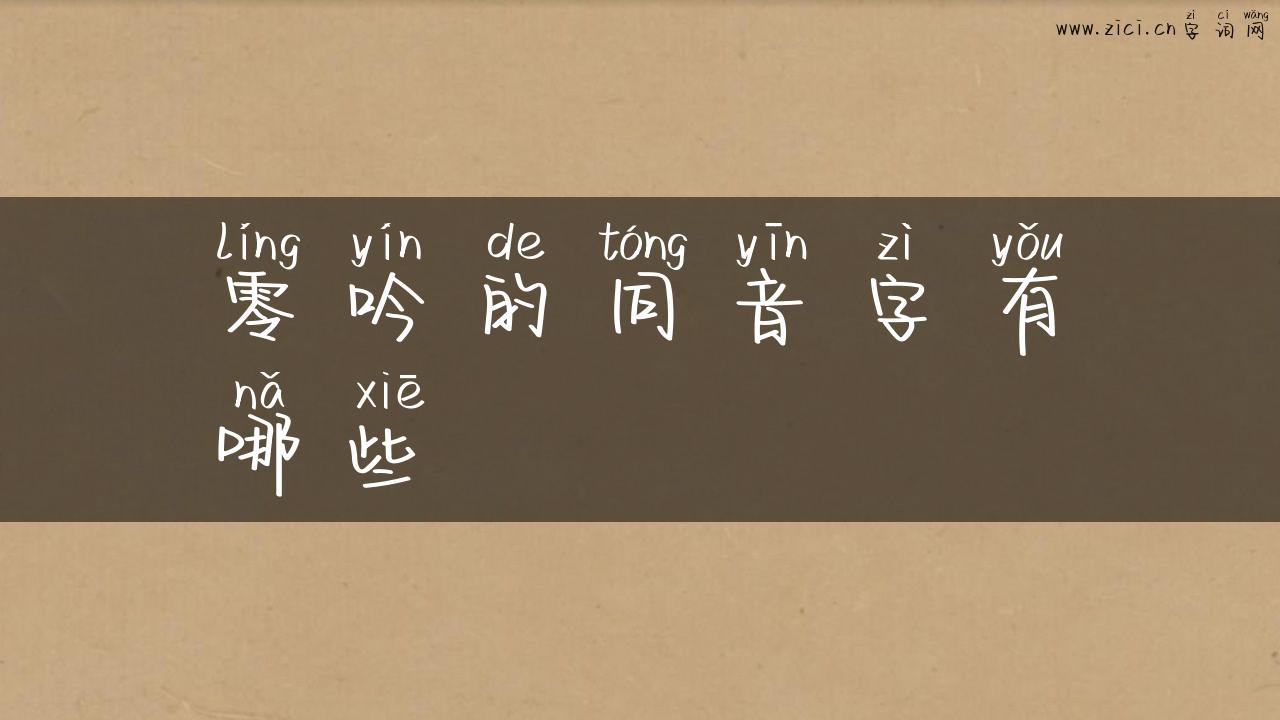 zì cí wǎng
www.zici.cn 字词网
líng yín de tóng yīn zì yǒu
零吟的同音字有
nǎ xiē
哪些